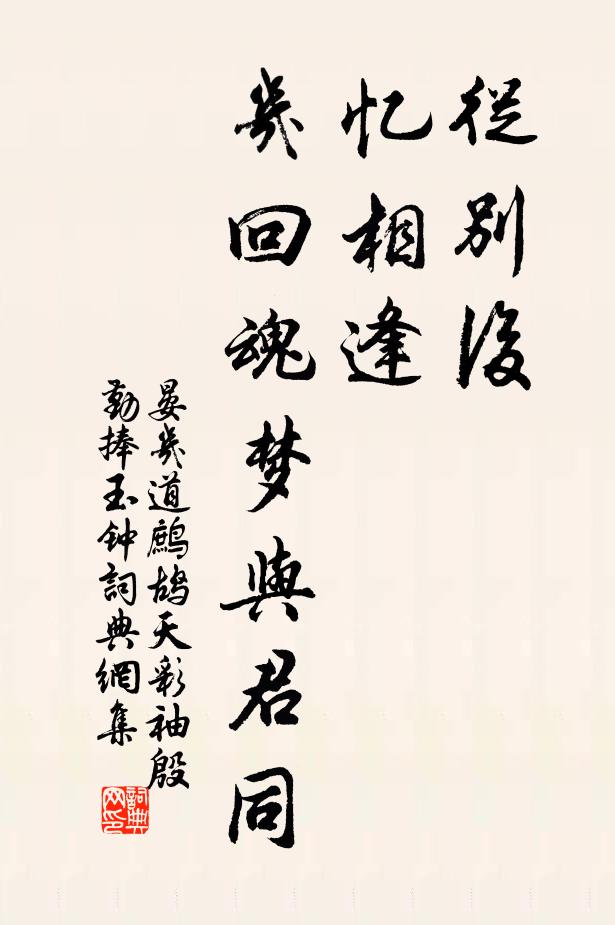 從别後
忆相逢
幾回魂梦與君同
晏幾道鷓鴣天彩袖殷
勤捧玉钟詞典網集
詞典
网印